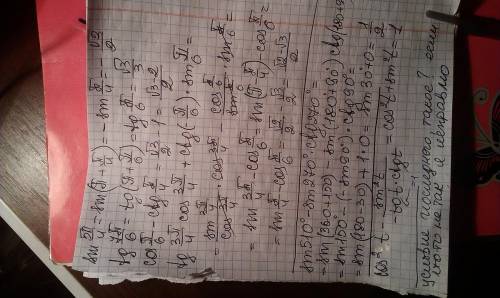 sin 5π/4 = sin(π + π/4) = -sin π/4 = -√2/2
tg 7π/6 = tg(π + π/6) = tg π/6 = √3/3
cos π/6 - ctg π/4 = √3/2 - 1 = √3-2/2
tg 3π/4 · cos 3π/4 + ctg(-π/6) · sin π/6 =
= sin 3π/4 / cos 3π/4 · cos 3π/4 - cos π/6 / sin π/6 · sin π/6 =
= sin 3π/4 - cos π/6 = sin(π - π/4) - cos π/6 =
= sin π/4 - cos π/6 = √2/2 - √3/2 = √2-√3/2
sin 510° - sin 270° · ctg 270° =
= sin(360+150) - sin(180+90°) ctg(180+90)
= sin 150 - (-sin 90°) · ctg 90° =
= sin(180-30) + 1·0 = sin 30° + 0 = 1/2
= cos²t + sin²t = 1
Условие последнего такое? если
что-то не так, я исправлю